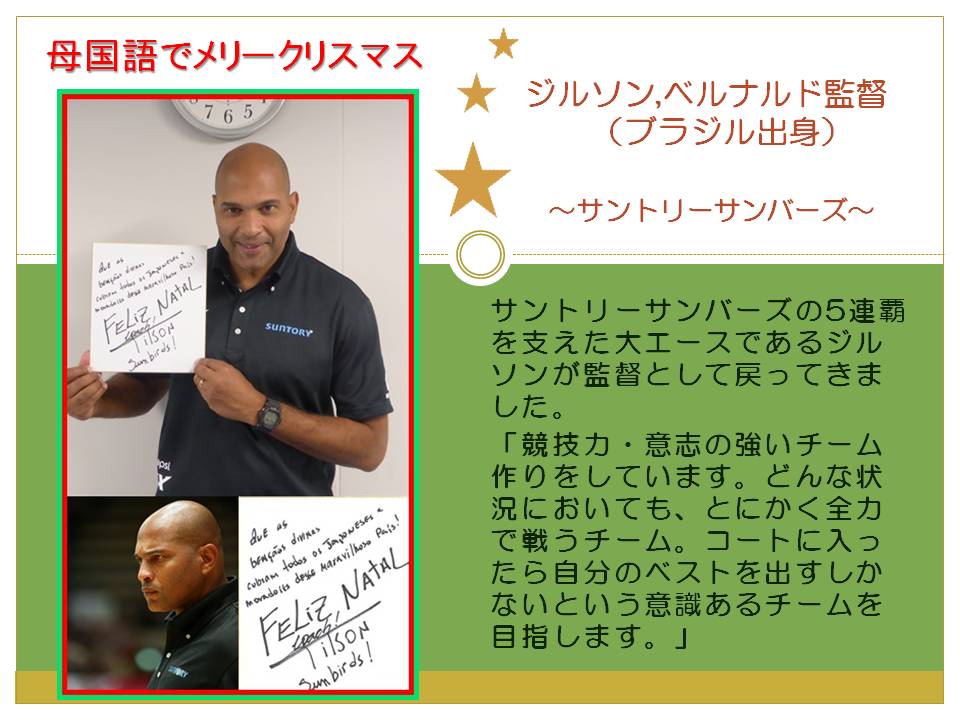 母国語でメリークリスマス
ジルソン,ベルナルド監督
（ブラジル出身）
～サントリーサンバーズ～
7 6 5
QUE AS
BENÇÃOS DIVINAS
CUBRAM TODOS OS JAPONESES E
MORADORES DESSE MARAVILHOSO PAÍS!
FELIZ NATAL
COACH,
GILSON
Sunbirds!
SUNTORY
SUNTORY
QUE AS
BENÇÃOS DIVINAS
CUBRAM TODOS OS JAPONESES E
MORADORES DESSE MARAVILHOSO PAÍS!
FELIZ NATAL
COACH,
GILSON
Sunbirds!
サントリーサンバーズの5連覇
を支えた大エースであるジル
ソンが監督として戻ってきま
した。
「競技力・意志の強いチーム
作りをしています。どんな状
況においても、とにかく全力
で戦うチーム。コートに入っ
たら自分のベストを出すしか
ないという意識あるチームを
目指します。」